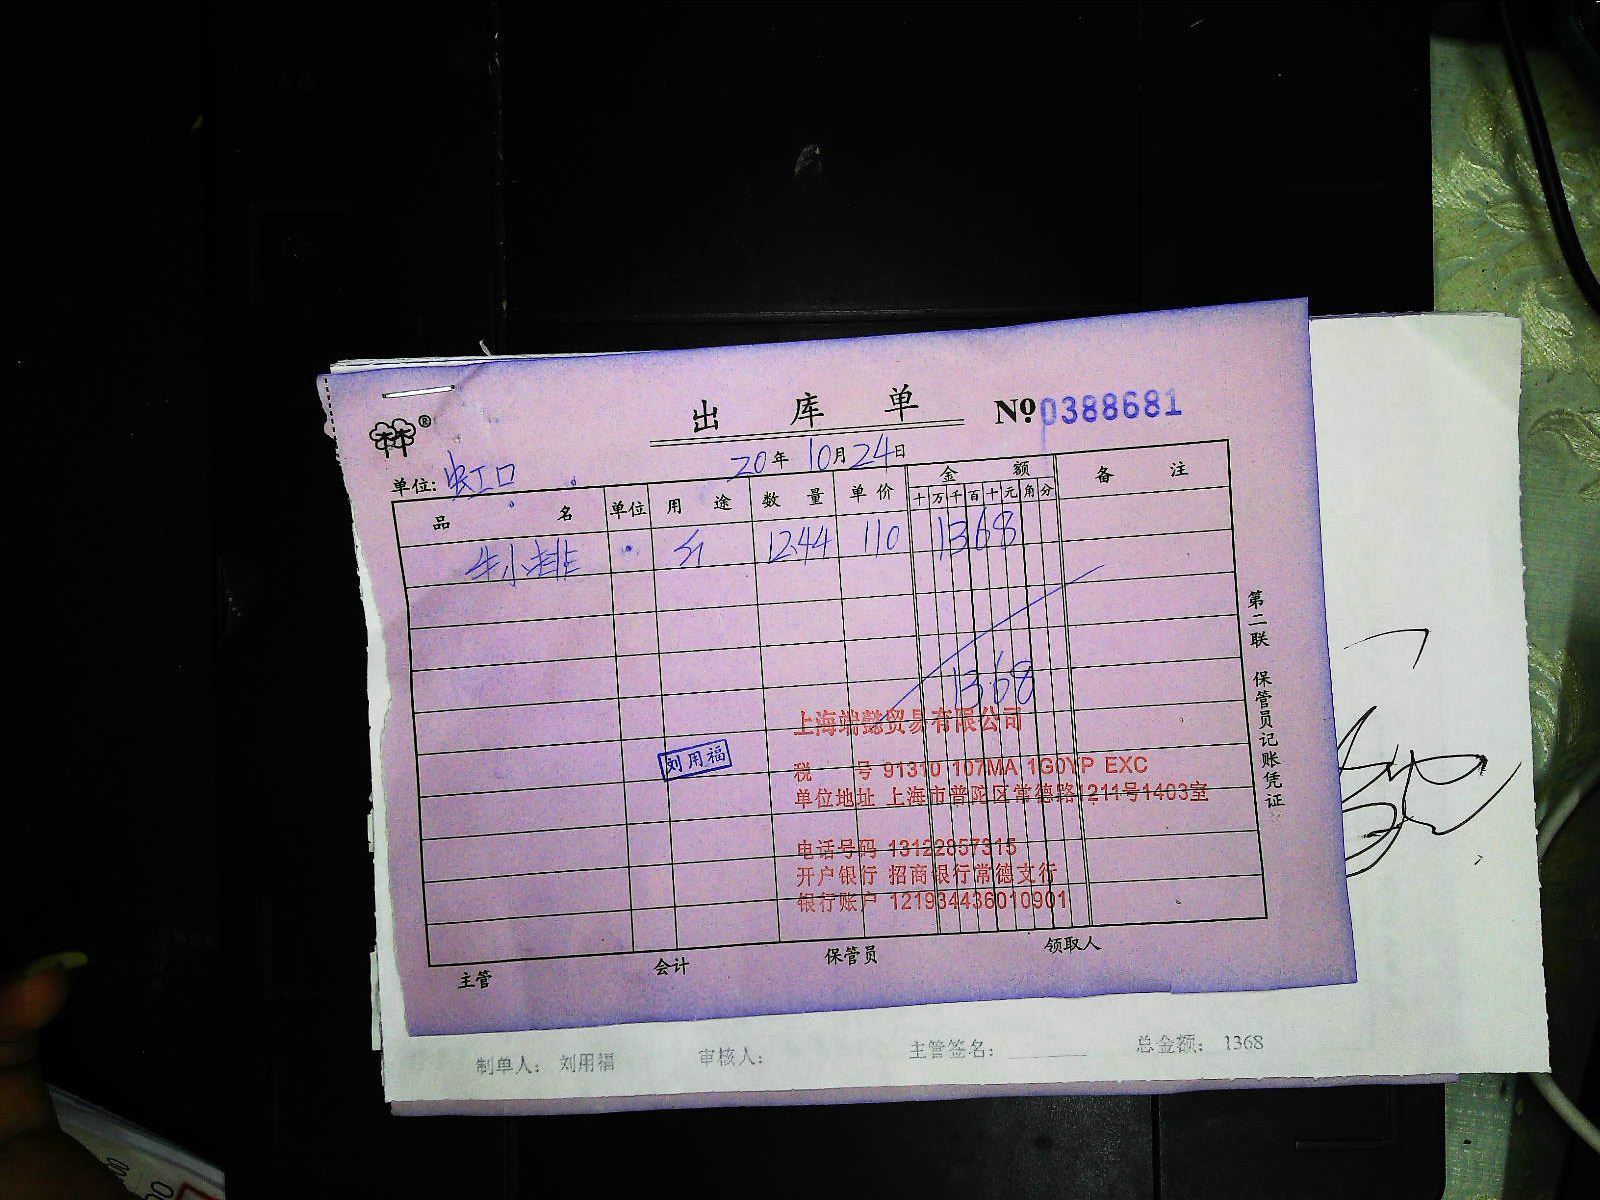 出 库 单 № 0388681
林®
单位: 虹口 20年 10月 24日
品 名 单位 用 途 数 量 单 价 金 额 备 注
十 万 千 百 十 元 角 分
牛小排 12.44 110 1368
1368
第二联 保管员记账凭证
上海端懿贸易有限公司
刘用福
税 号 91310 107MA 1G0YP EXC
单位地址 上海市普陀区常德路1211号1403室
电话号码 13122857315
开户银行 招商银行常德支行
银行账户 121934436010901
主管 会计 保管员 领取人
制单人： 刘用福 审核人： 主管签名： 总金额： 1368